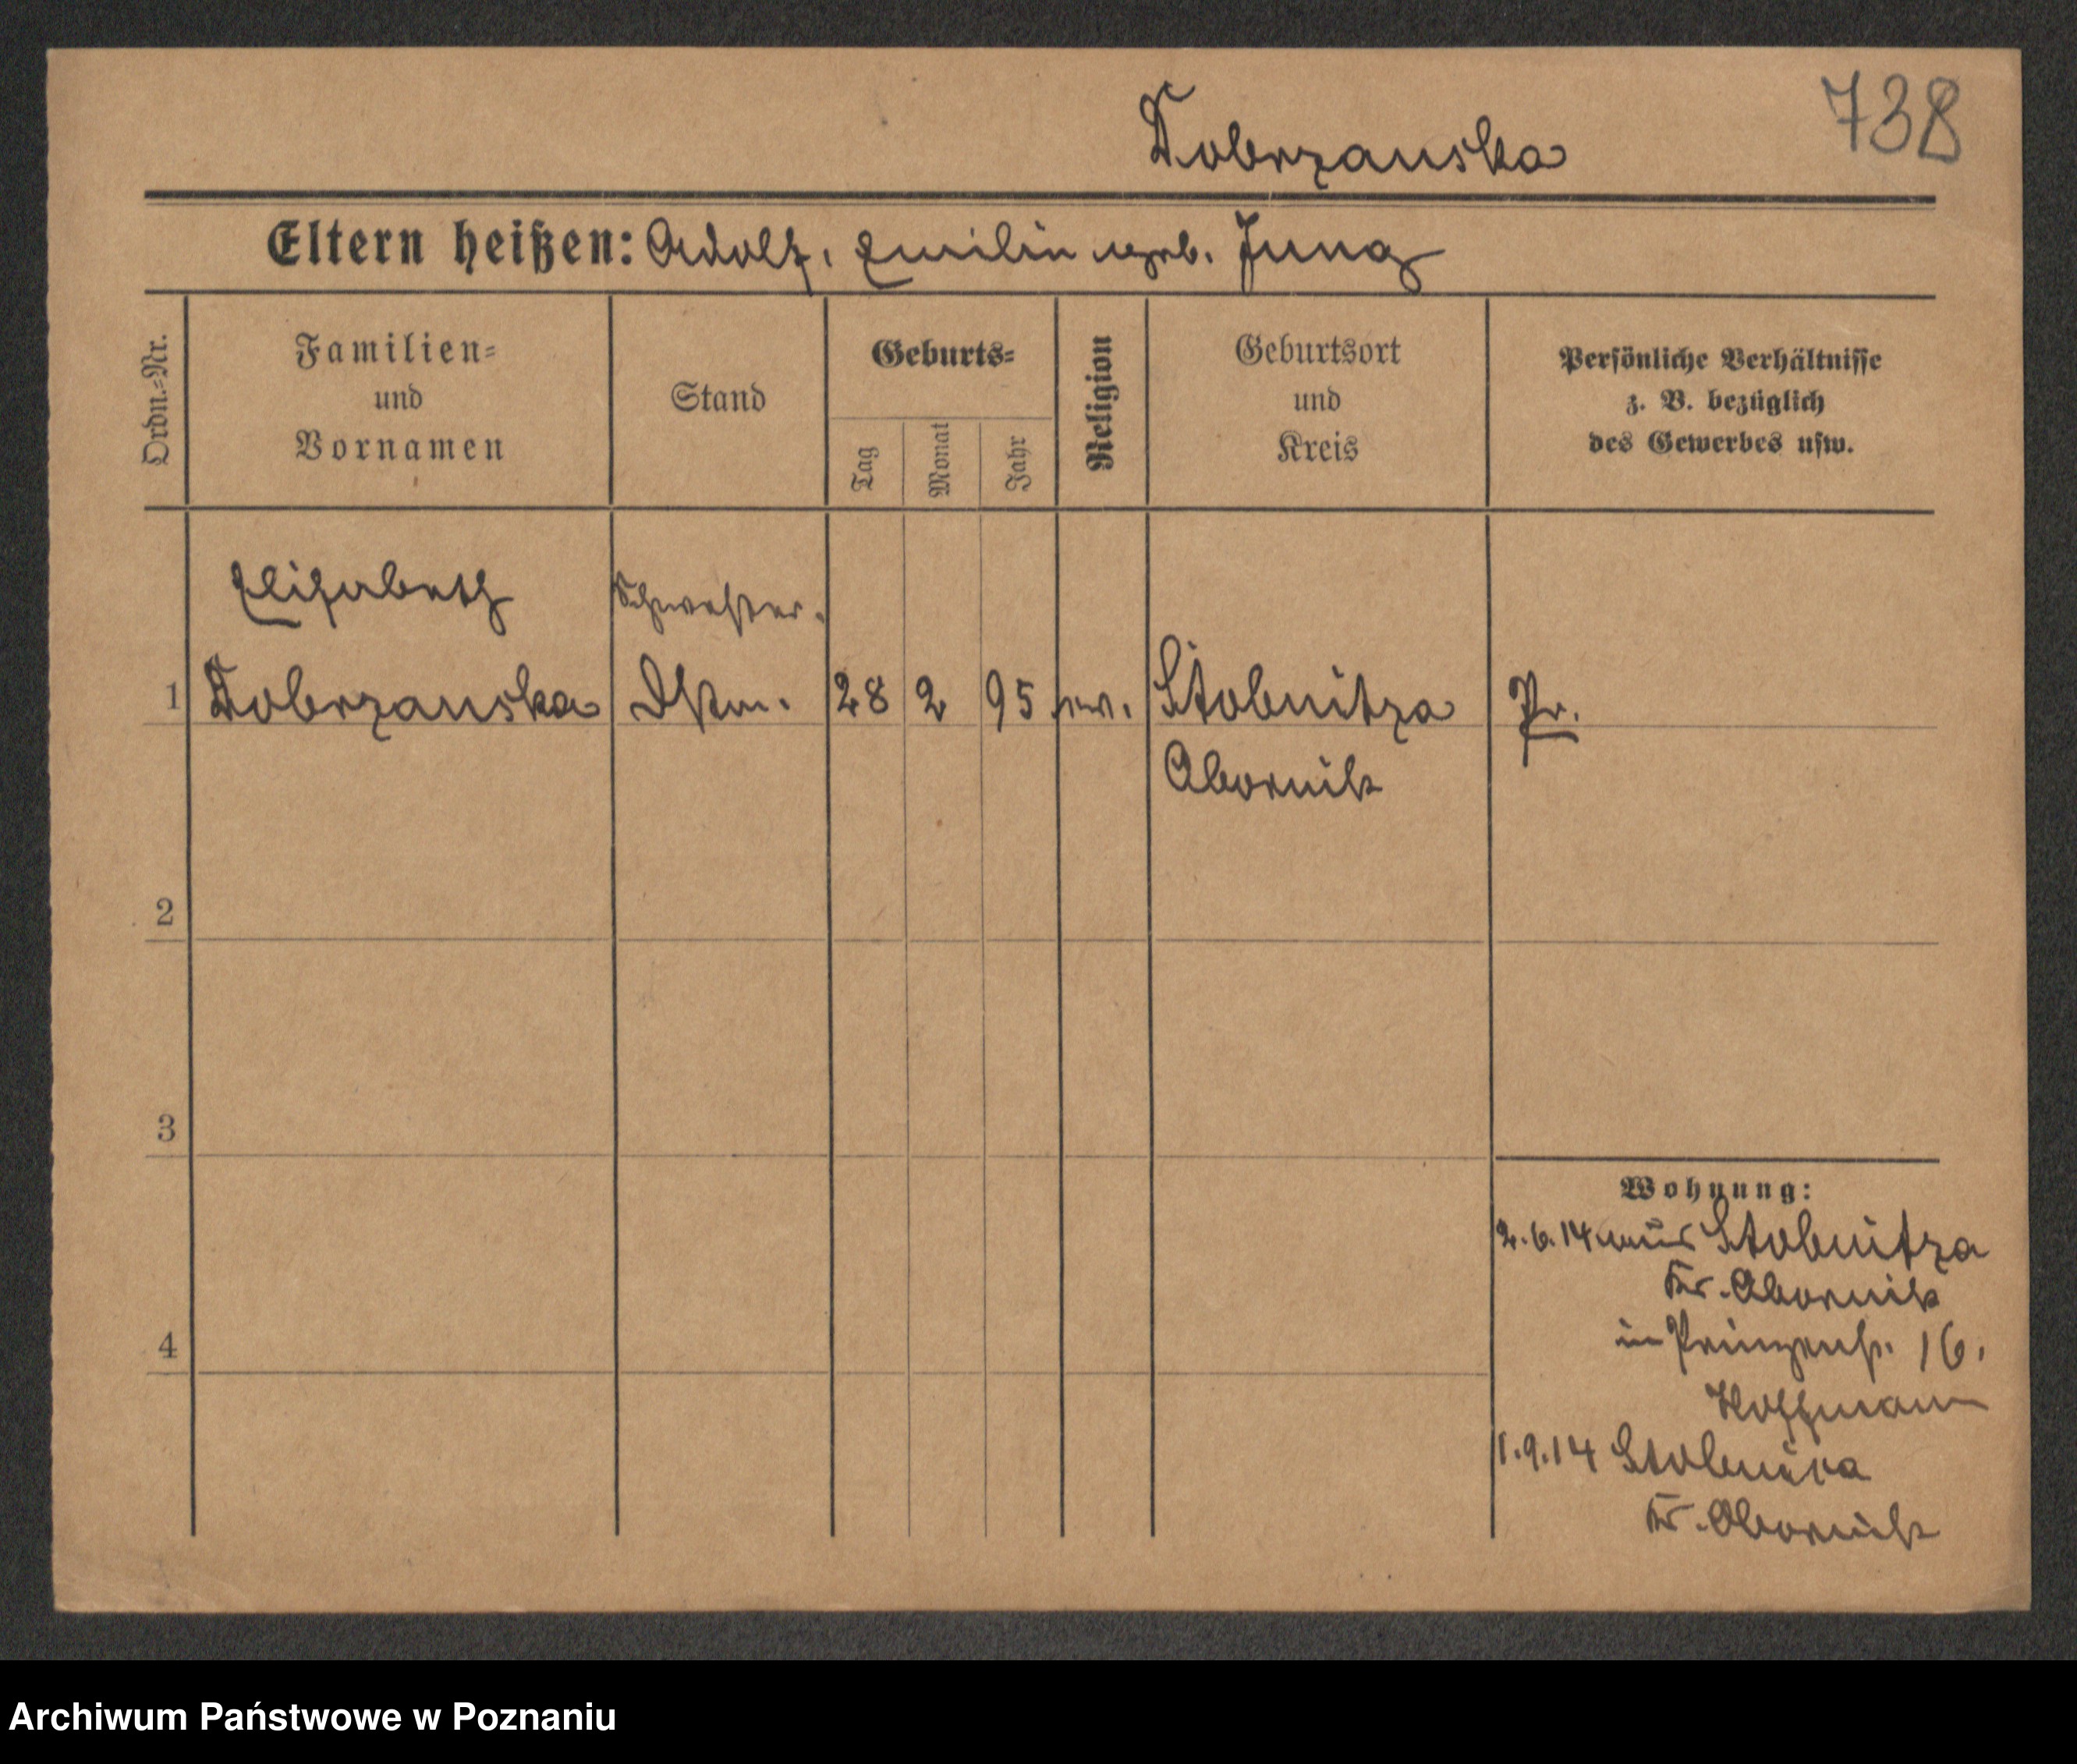 738
Dobrzanska
Eltern heißen: Adolf, Emilie geb. Jung
Ordn.=Nr.
Familien=
und
Vornamen
Stand
Geburts=
Tag
Monat
Jahr
Religion
Geburtsort
und
Kreis
Persönliche Verhältnisse
z. B. bezüglich
des Gewerbes usw.
Elisabeth Schwester.
1 Dobrzanska 28 2 95 ev. Stobnitza Pr.
Obornik
2
3
4
Wohnung:
2.6.14 aus Stobnitza
Kr. Obornik
in Prinzenst. 16.
Hoffmann
1.9.14 Stobnica
Kr. Obornik
Archiwum Państwowe w Poznaniu